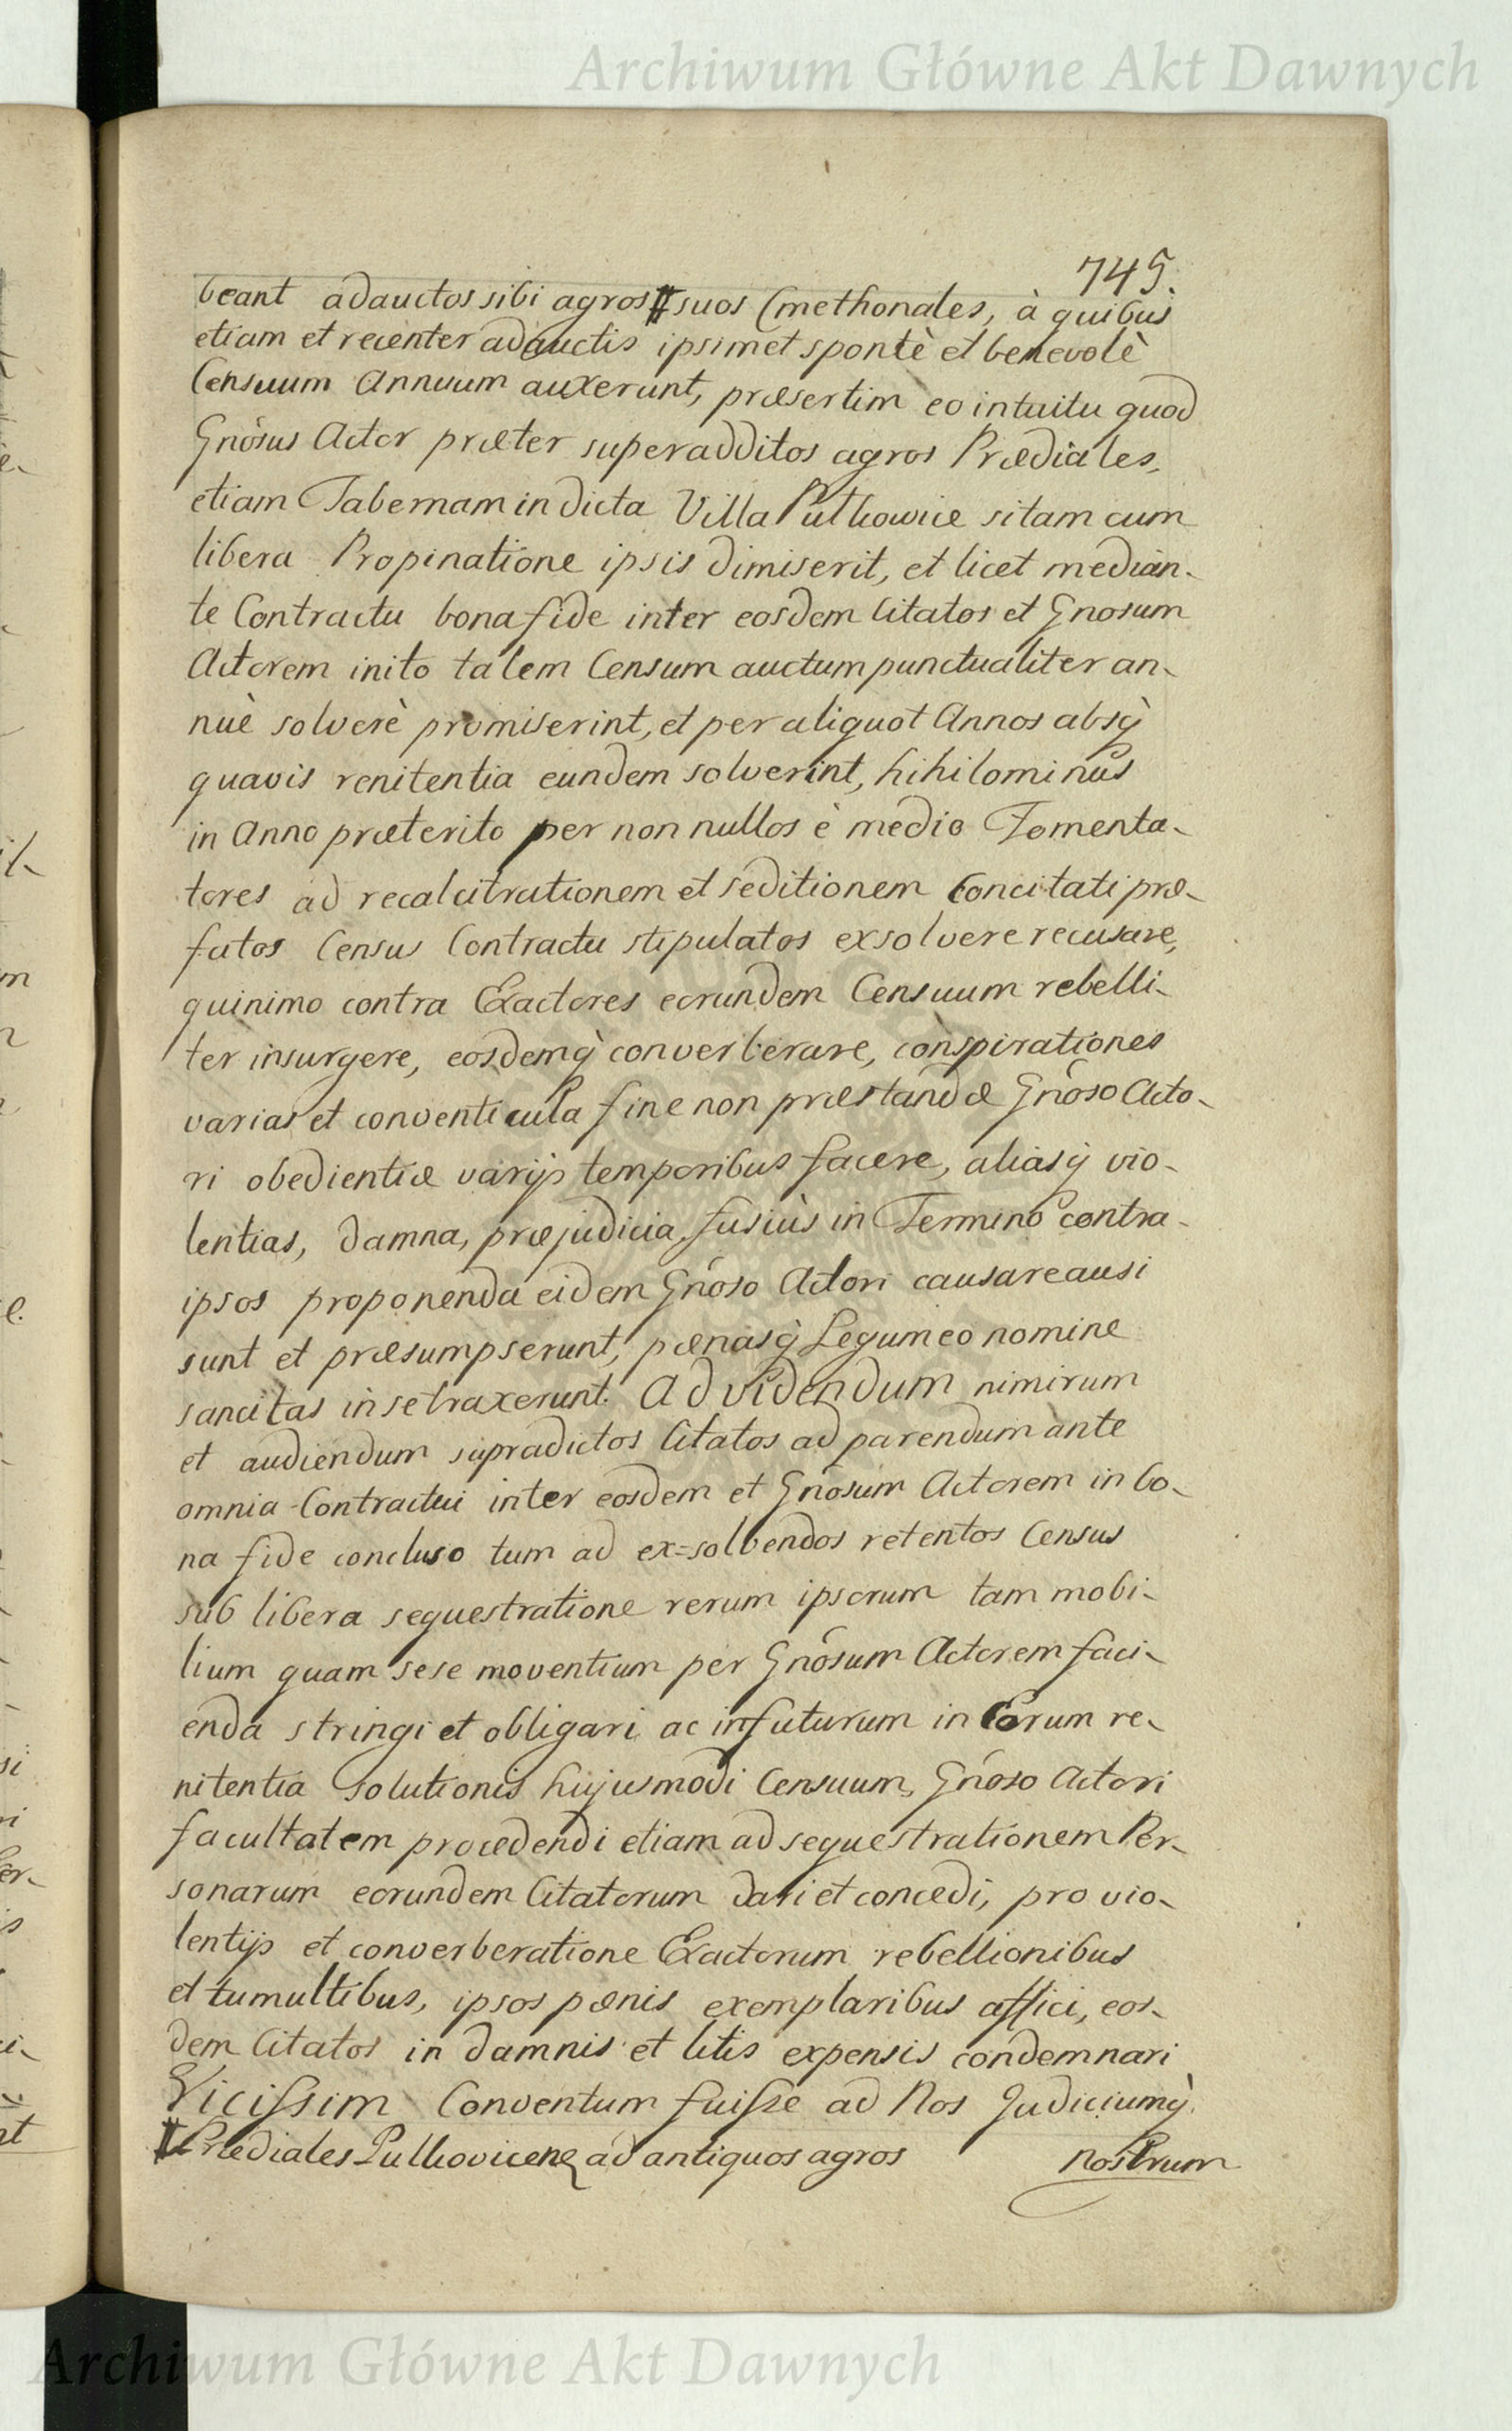 Archiwum Główne Akt Dawnych
745.
beant adauctos sibi agros # suos Cmethonales, à quibus
etiam et recenter adauctis ipsimet spontè et benevolè
Censuum Annuum auxerunt, præsertim eo intuitu quod
Gnosus Actor præter superadditos agros Prædiales,
etiam Tabernam in dicta Villa Putkowice sitam cum
libera Propinatione ipsis dimiserit, et licet median-
te Contractu bona fide inter eosdem Citatos et Gnosum
Actorem inito talem Censum auctum punctualiter an-
nuè solverè promiserint, et per aliquot Annos absq̀
quavis renitentia eundem solverint, hihilominus
in Anno præterito per non nullos è medio Fomenta-
tores ad recalcitrationem et seditionem Concitati præ-
fatos Census Contractu stipulatos exsolvere recusare,
quinimo contra Exactores eorundem Censuum rebelli-
ter insurgere, eosdemq̀ converberare, conspirationes
varias et conventicula fine non præstandæ Gnoso Acto-
ri obedientiæ varijs temporibus facere, aliasq̀ vio-
lentias, damna, præjudicia, fusiùs in Termino contra-
ipsos proponenda eidem Gnoso Actori causare ausi
sunt et præsumpserunt, pœnasq̀ Legum eo nomine
sancitas in se traxerunt. Ad videndum nimirum
et audiendum supradictos Citatos ad parendum ante
omnia Contractui inter eosdem et Gnosum Actorem in bo-
na fide concluso tum ad ex=solvendos retentos Census
sub libera sequestratione rerum ipsorum tam mobi-
lium quam sese moventium per Gnosum Actorem faci-
enda stringi et obligari ac in futurum in Eorum re-
nitentia solutionis hujusmodi Censuum, Gnoso Actori
facultatem procedendi etiam ad sequestrationem Per-
sonarum eorundem Citatorum dari et concedi, pro vio-
lentijs et converberatione Exactorum rebellionibus
et tumultibus, ipsos pœnis exemplaribus affici, eos-
dem Citatos in damnis et litis expensis condemnari
Vicissim Conventum fuisse ad Nos Judiciumq̀
# Prædiales Putkovicens ad antiquos agros nostrum
Archiwum Główne Akt Dawnych